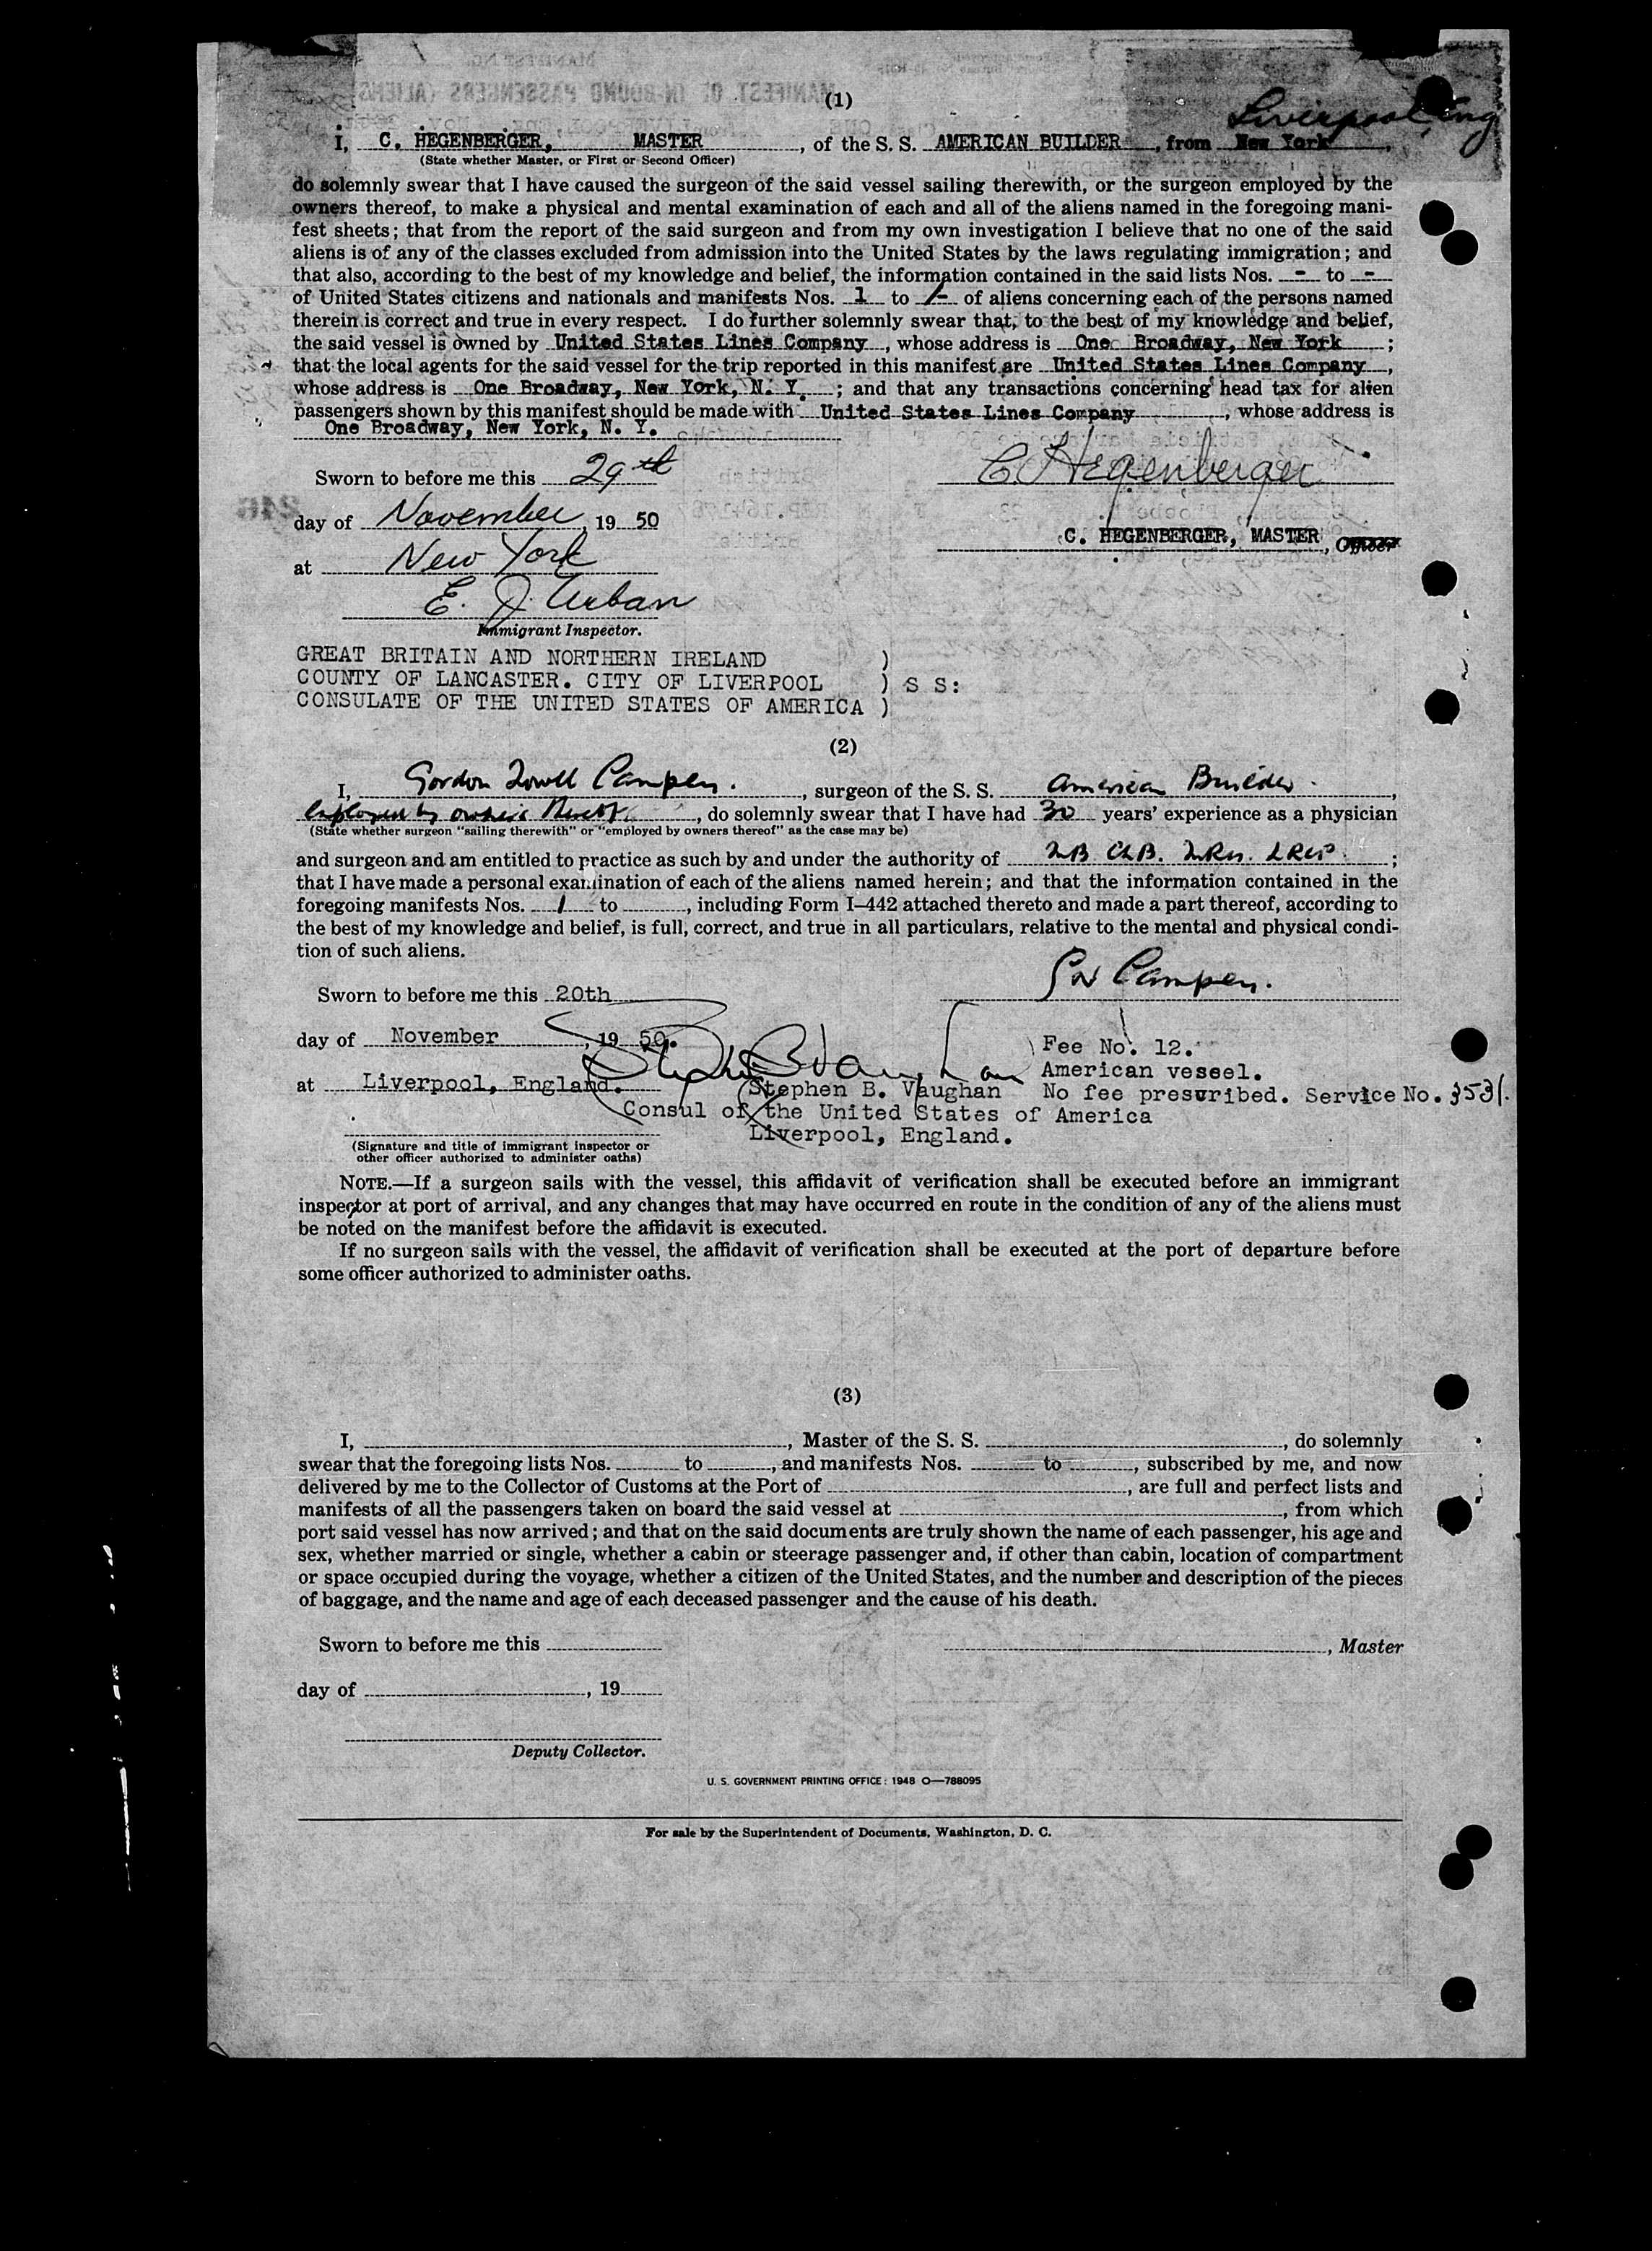 (1)
Liverpool, Eng
I, C. HEGENBERGER, MASTER, of the S. S. AMERICAN BUILDER, from New York,
(State whether Master, or First or Second Officer)
do solemnly swear that I have caused the surgeon of the said vessel sailing therewith, or the surgeon employed by the
owners thereof, to make a physical and mental examination of each and all of the aliens named in the foregoing mani-
fest sheets; that from the report of the said surgeon and from my own investigation I believe that no one of the said
aliens is of any of the classes excluded from admission into the United States by the laws regulating immigration; and
that also, according to the best of my knowledge and belief, the information contained in the said lists Nos. - to -
of United States citizens and nationals and manifests Nos. 1 to 1- of aliens concerning each of the persons named
therein is correct and true in every respect. I do further solemnly swear that, to the best of my knowledge and belief,
the said vessel is owned by United States Lines Company, whose address is One Broadway, New York;
that the local agents for the said vessel for the trip reported in this manifest are United States Lines Company,
whose address is One Broadway, New York, N. Y.; and that any transactions concerning head tax for alien
passengers shown by this manifest should be made with United States Lines Company, whose address is
One Broadway, New York, N. Y.
Sworn to before me this 29th
C. Hegenberger
day of November, 19 50
C. HEGENBERGER, MASTER, Officer
at New York
E. J. Urban
Immigrant Inspector.
GREAT BRITAIN AND NORTHERN IRELAND )
COUNTY OF LANCASTER. CITY OF LIVERPOOL ) S S:
CONSULATE OF THE UNITED STATES OF AMERICA )
(2)
I, Gordon Campen., surgeon of the S. S. American Builder.,
employed by owners thereof, do solemnly swear that I have had 30 years' experience as a physician
(State whether surgeon "sailing therewith" or "employed by owners thereof" as the case may be)
and surgeon and am entitled to practice as such by and under the authority of ChB.;
that I have made a personal examination of each of the aliens named herein; and that the information contained in the
foregoing manifests Nos. 1 to , including Form I-442 attached thereto and made a part thereof, according to
the best of my knowledge and belief, is full, correct, and true in all particulars, relative to the mental and physical condi-
tion of such aliens.
Campen.
Sworn to before me this 20th
day of November, 19 50.
Stephen B. Vaughan
Fee No. 12.
American vessel.
at Liverpool, England.
Stephen B. Vaughan No fee prescribed. Service No. 3531.
Consul of the United States of America
Liverpool, England.
(Signature and title of immigrant inspector or
other officer authorized to administer oaths)
NOTE.—If a surgeon sails with the vessel, this affidavit of verification shall be executed before an immigrant
inspector at port of arrival, and any changes that may have occurred en route in the condition of any of the aliens must
be noted on the manifest before the affidavit is executed.
If no surgeon sails with the vessel, the affidavit of verification shall be executed at the port of departure before
some officer authorized to administer oaths.
(3)
I, , Master of the S. S. , do solemnly
swear that the foregoing lists Nos. to , and manifests Nos. to , subscribed by me, and now
delivered by me to the Collector of Customs at the Port of , are full and perfect lists and
manifests of all the passengers taken on board the said vessel at , from which
port said vessel has now arrived; and that on the said documents are truly shown the name of each passenger, his age and
sex, whether married or single, whether a cabin or steerage passenger and, if other than cabin, location of compartment
or space occupied during the voyage, whether a citizen of the United States, and the number and description of the pieces
of baggage, and the name and age of each deceased passenger and the cause of his death.
Sworn to before me this
, Master
day of , 19
Deputy Collector.
U. S. GOVERNMENT PRINTING OFFICE : 1948 O—788095
For sale by the Superintendent of Documents, Washington, D. C.